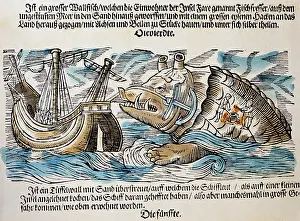 Ist ein grosser Wallfisch/welchen die Einwohner der Insel Fare genannt Fischfresser/auß dem
ungestümen Meer in den Sand hinauß geworffen/und mit einem grossen eysenen Hacken an das
Land herauß gezogen/mit Achsen und Beilen zu Stücke hauen/und unter sich selber theilen.
Die vierdte.
Ist ein Wall mit Sand überstreuet/auff welchem die Schiffleut/als auff einer kleinen
Insel angezeichnet/das Schiff daran gehefftet haben/also aber manchesmahl in grosse Ge-
fahr kommen/wie oben erwehnet worden.
Die fünffte.